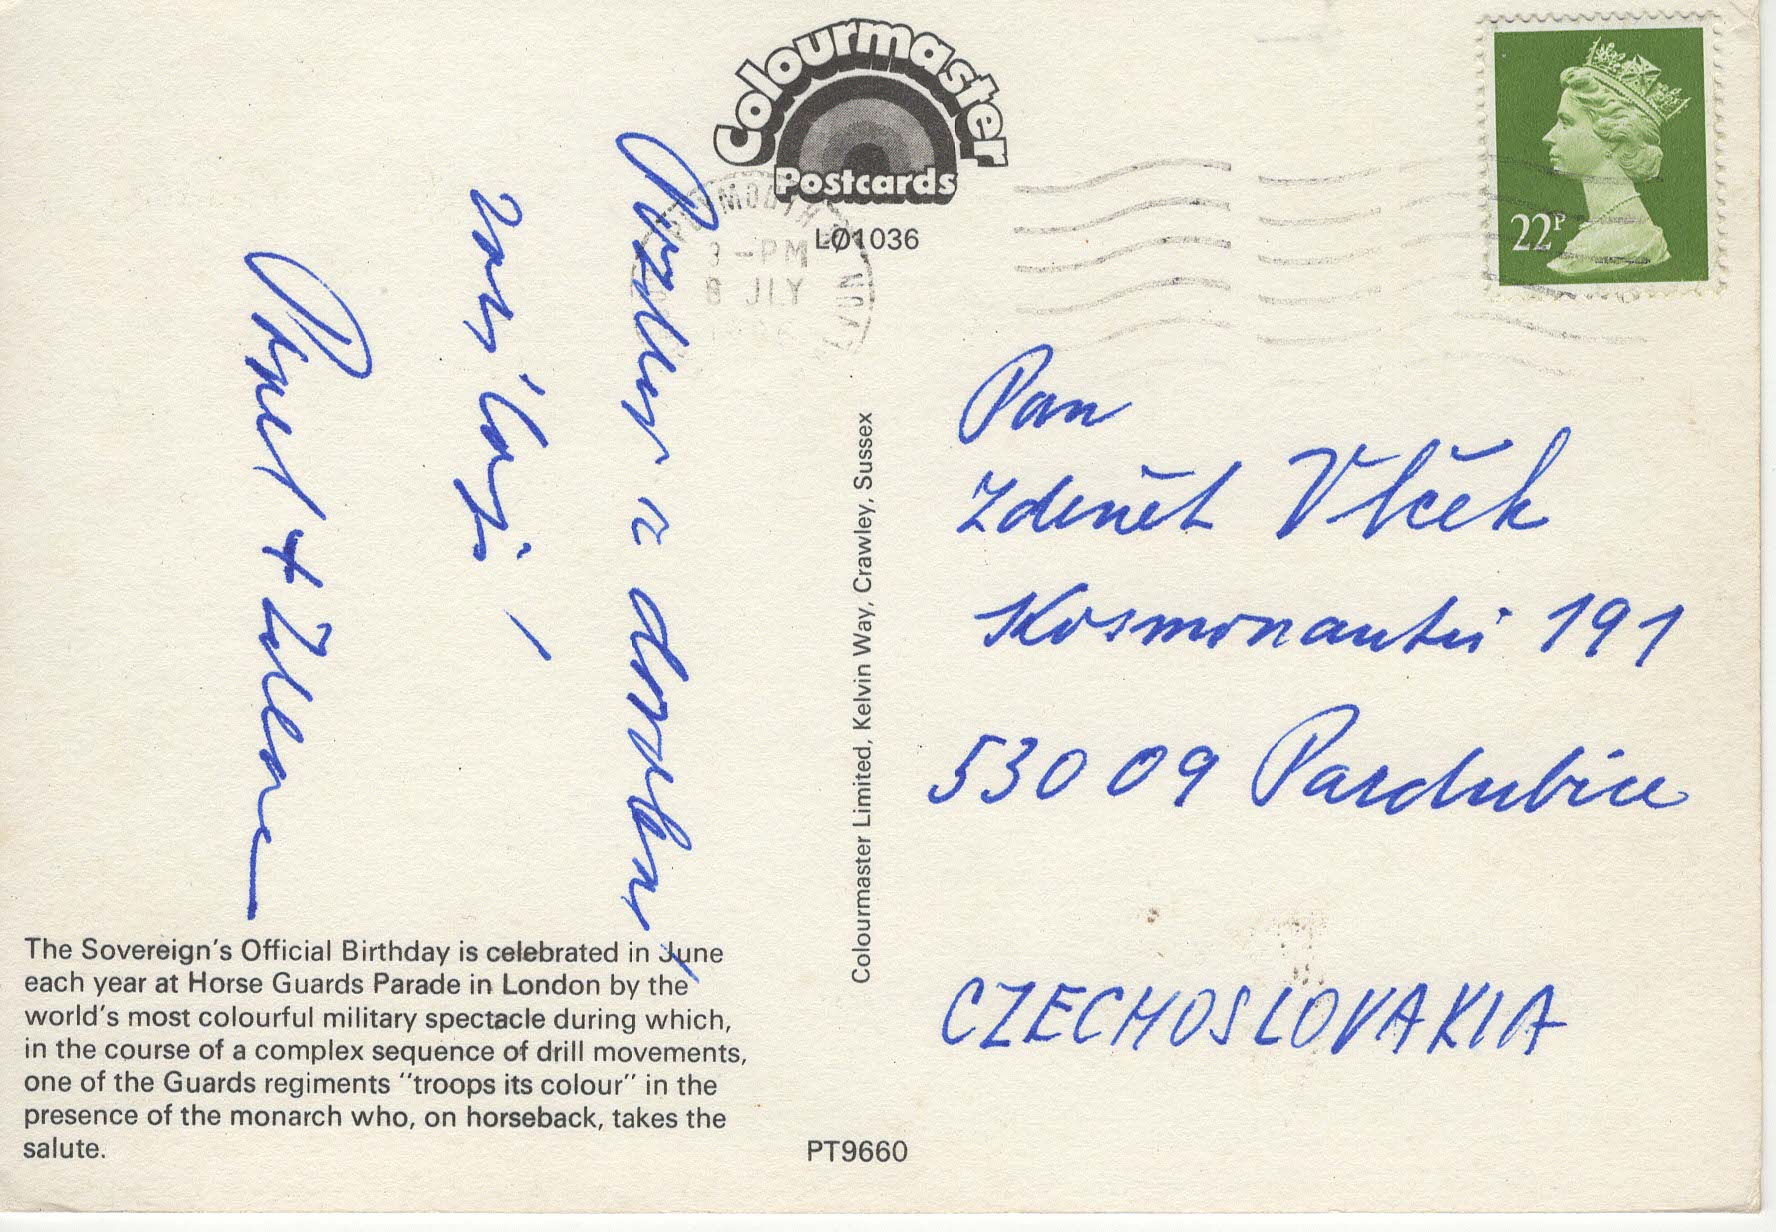 Colourmaster
Postcards
LØ1036
PLYMOUTH
3-PM
8 JLY
22P
Pan
Zdeněk Vlček
Kosmonautů 191
53009 Pardubice
CZECHOSLOVAKIA
a
+
Colourmaster Limited, Kelvin Way, Crawley, Sussex
The Sovereign's Official Birthday is celebrated in June
each year at Horse Guards Parade in London by the
world's most colourful military spectacle during which,
in the course of a complex sequence of drill movements,
one of the Guards regiments "troops its colour" in the
presence of the monarch who, on horseback, takes the
salute.
PT9660